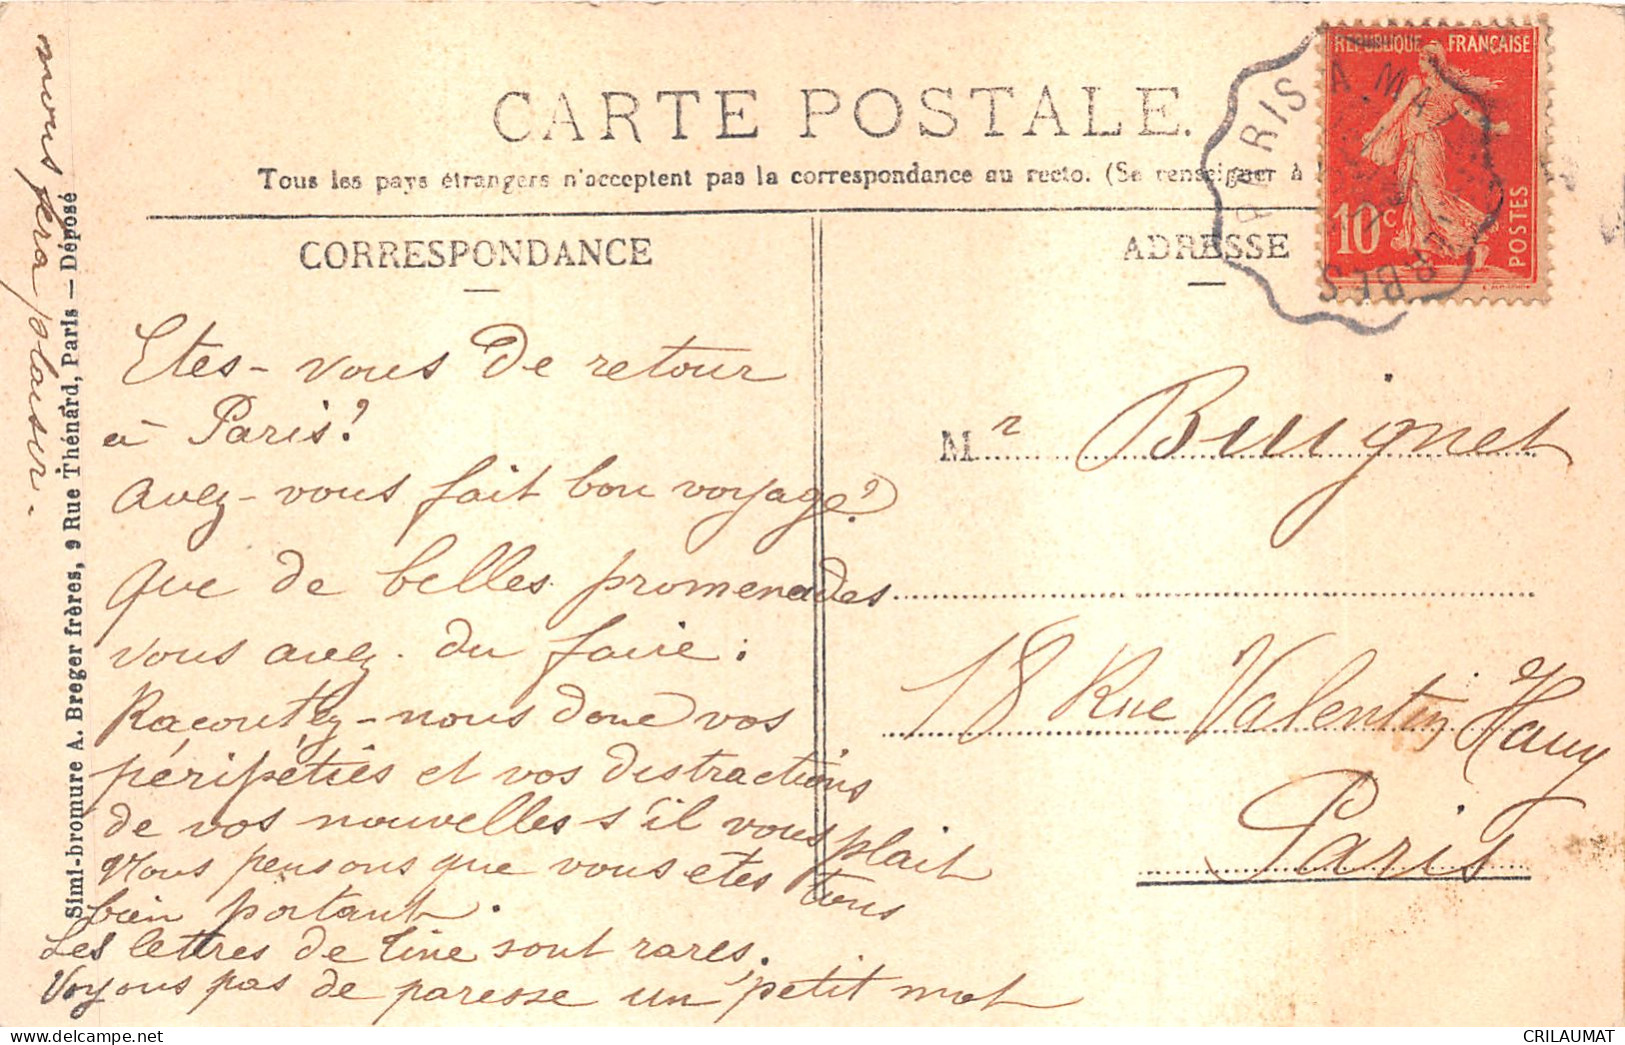 CARTE POSTALE.
Tous les pays étrangers n'acceptent pas la correspondance au recto. (Se renseigner à
CORRESPONDANCE
ADRESSE
REPUBLIQUE FRANÇAISE
10c
POSTES
PARIS A
Etes-vous de retour
à Paris?
avez-vous fait bon voyage?
que de belles promenades
vous avez du faire:
Racontez-nous donc vos
péripéties et vos distractions
de vos nouvelles s'il vous plait
Nous pensons que vous etes tous
bien portant.
Les lettres de Line sont rares.
Voyons pas de paresse un petit mot
nous fera plaisir.
Simi-bromure A. Breger frères, 9 Rue Thénard, Paris — Déposé
Mr Buignet
18 Rue Valentin Hauy
Paris
CRILAUMAT